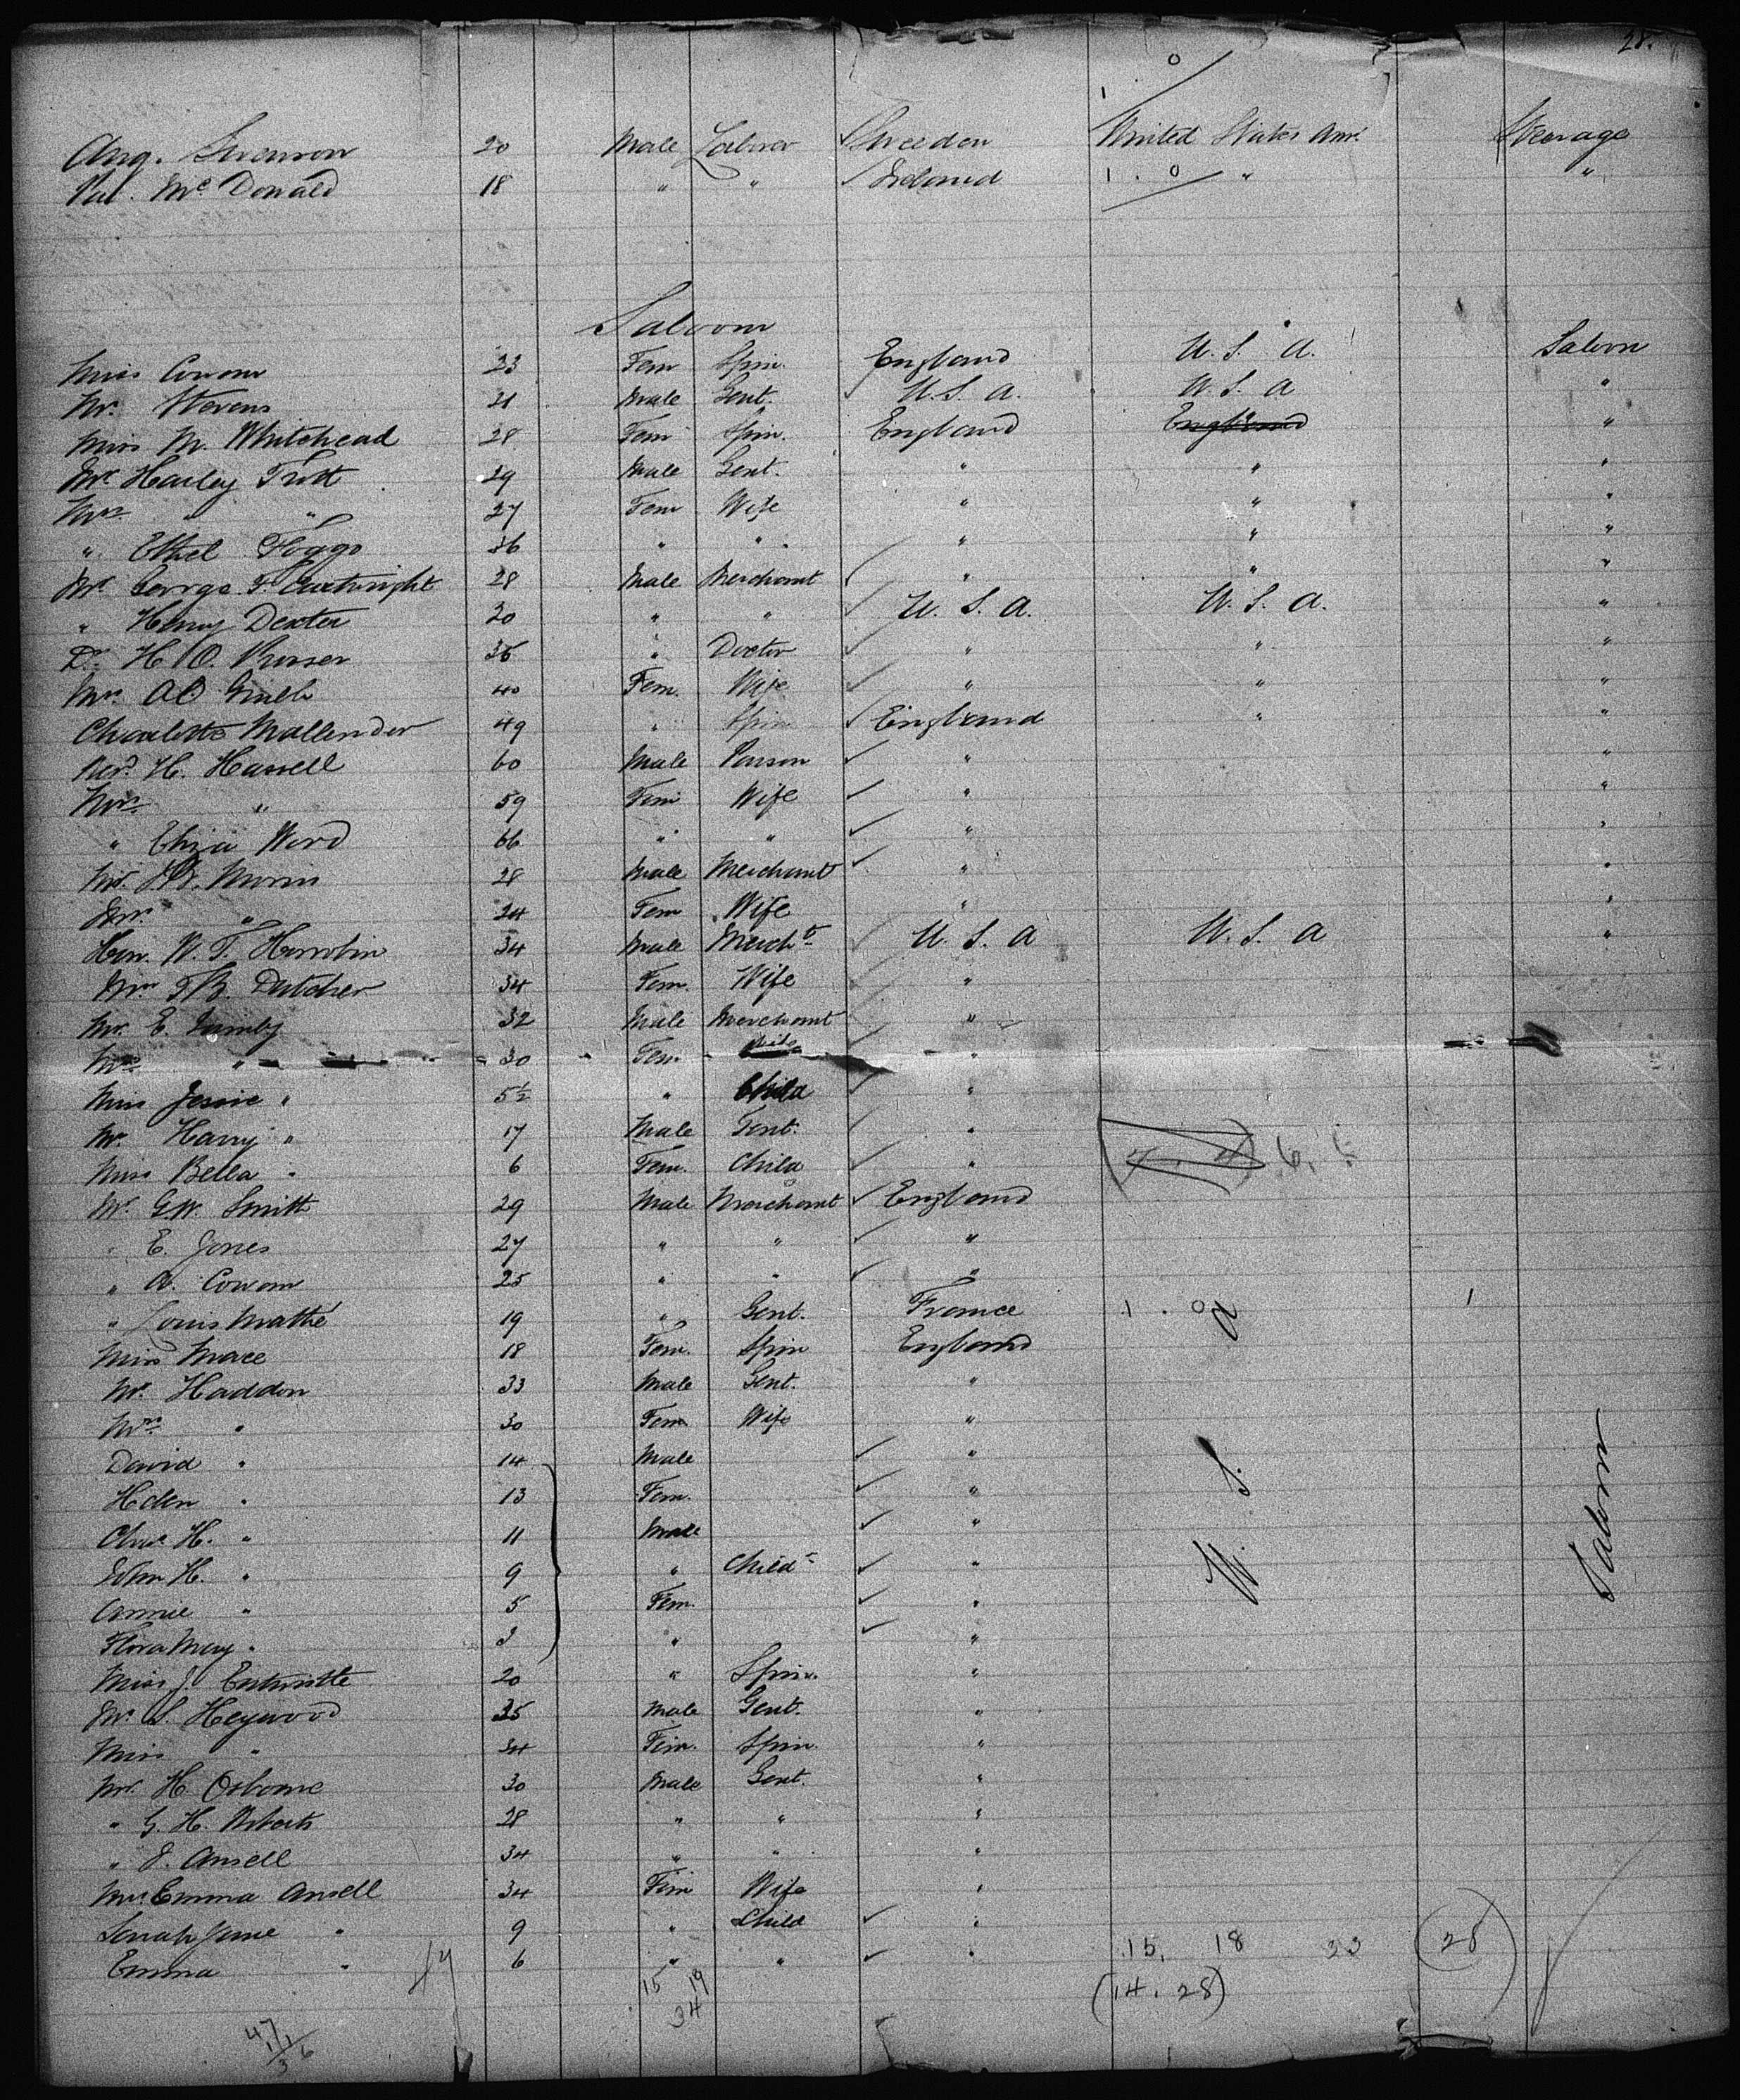 28.
0
1
Aug. Swenson 20 Male Laborer Sweeden United States Amr. Steerage
Pat. McDonald 18 " " Ireland 1 . 0 " "
Saloon
Miss Cowan 23 Fem Spin. England U. S. A. Saloon
Mr. Stevens 21 Male Gent. U. S. A. U. S. A "
Miss M. Whitehead 28 Fem Spin. England England "
Mr. Harley Trott 29 Male Gent. " " "
Mrs. " " 27 Fem Wife " " "
" Ethel Foggo 36 " " " " "
Mr. George F. Cartwright 28 Male Merchant " " "
" Henry Dexter 20 " " U. S. A. U. S. A. "
Dr. H. O. 36 " Doctor " " "
Mrs. A O 40 Fem. Wife " " "
Charlotte Mallender 49 " Spin England " "
Revd. H. Hassell 60 Male Parson " "
Mrs. " 59 Fem Wife " "
" Eliza Ward 66 " " " "
Mr. Morris 28 Male Merchant " "
Mrs. " 24 Fem Wife " "
W. T. 34 Male Mercht. U. S. A U. S. A "
Mrs. Dutcher 34 Fem. Wife "
Mr. E. 32 Male Merchant "
Mrs. " 30 Fem Wife "
Miss Jessie " 5½ " Child "
Mr. Harry " 17 Male Gent. "
Miss Bella " 6 Fem. Child " 6.
Mr. G.W. Smith 29 Male Merchant England
" E. Jones 27 " " "
" A. Cowan 25 " " "
" Louis Mathé 19 " Gent. France 1 . 0 1
Miss Mace 18 Fem. Spin England
Mr. Haddon 33 Male Gent. "
Mrs. " 30 Fem Wife "
David " 14 Male "
Helen " 13 Fem. "
Chas. H. " 11 Male "
H. " 9 " Child "
Annie " 5 Fem. "
Flora May " 3 " "
U. S. A
Saloon
Miss J. Entwistle 20 " Spin. "
Mr. S. Heywood 35 Male Gent. "
Miss " 34 Fem. Spin. "
Mr. H. Osborne 30 Male Gent. "
" G. H. Roberts 28 " " "
" J. Ansell 34 " " "
Mrs. Emma Ansell 34 Fem Wife "
Sarah Jane " 9 " Child "
Emma " 6 " " " 15. 18 33 28
47 15 19 (14. 28)
34
47